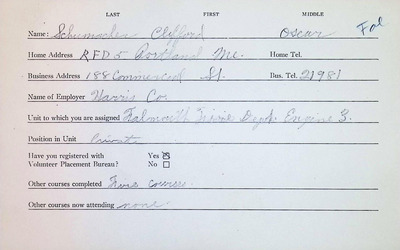 LAST FIRST MIDDLE
Name: Schumacher Clifford Oscar Fal
Home Address RFD 5 Portland Me. Home Tel.
Business Address 188 Commercial St. Bus. Tel. 21981
Name of Employer Harris Co.
Unit to which you are assigned Falmouth Fire Dept. Engine 3.
Position in Unit Private
Have you registered with Yes ☒
Volunteer Placement Bureau? No ☐
Other courses completed course
Other courses now attending none.